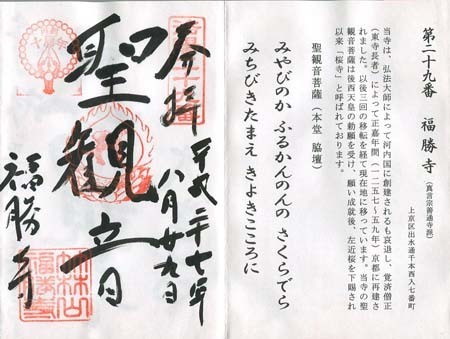 第二十九番 福勝寺(真言宗善通寺派)
上京区出水通千本西入七番町
当寺は、弘法大師によって河内国に創建されるも衰退し、覚済僧正
(東寺長者)によって正嘉年間(一二五七～五九年)京都に再建さ
れました。以後三回の移転を経て現在地に移っています。当寺の聖
観音菩薩は後西天皇の勅願を受け、願い成就後、左近桜を下賜され
以来「桜寺」と呼ばれております。
聖観音菩薩(本堂 脇壇)
みやびのか ふるかんのんの さくらでら
みちびきたまえ きよきこころに
奉拝
平成二十七年
八月廿九日
聖観音
福勝寺